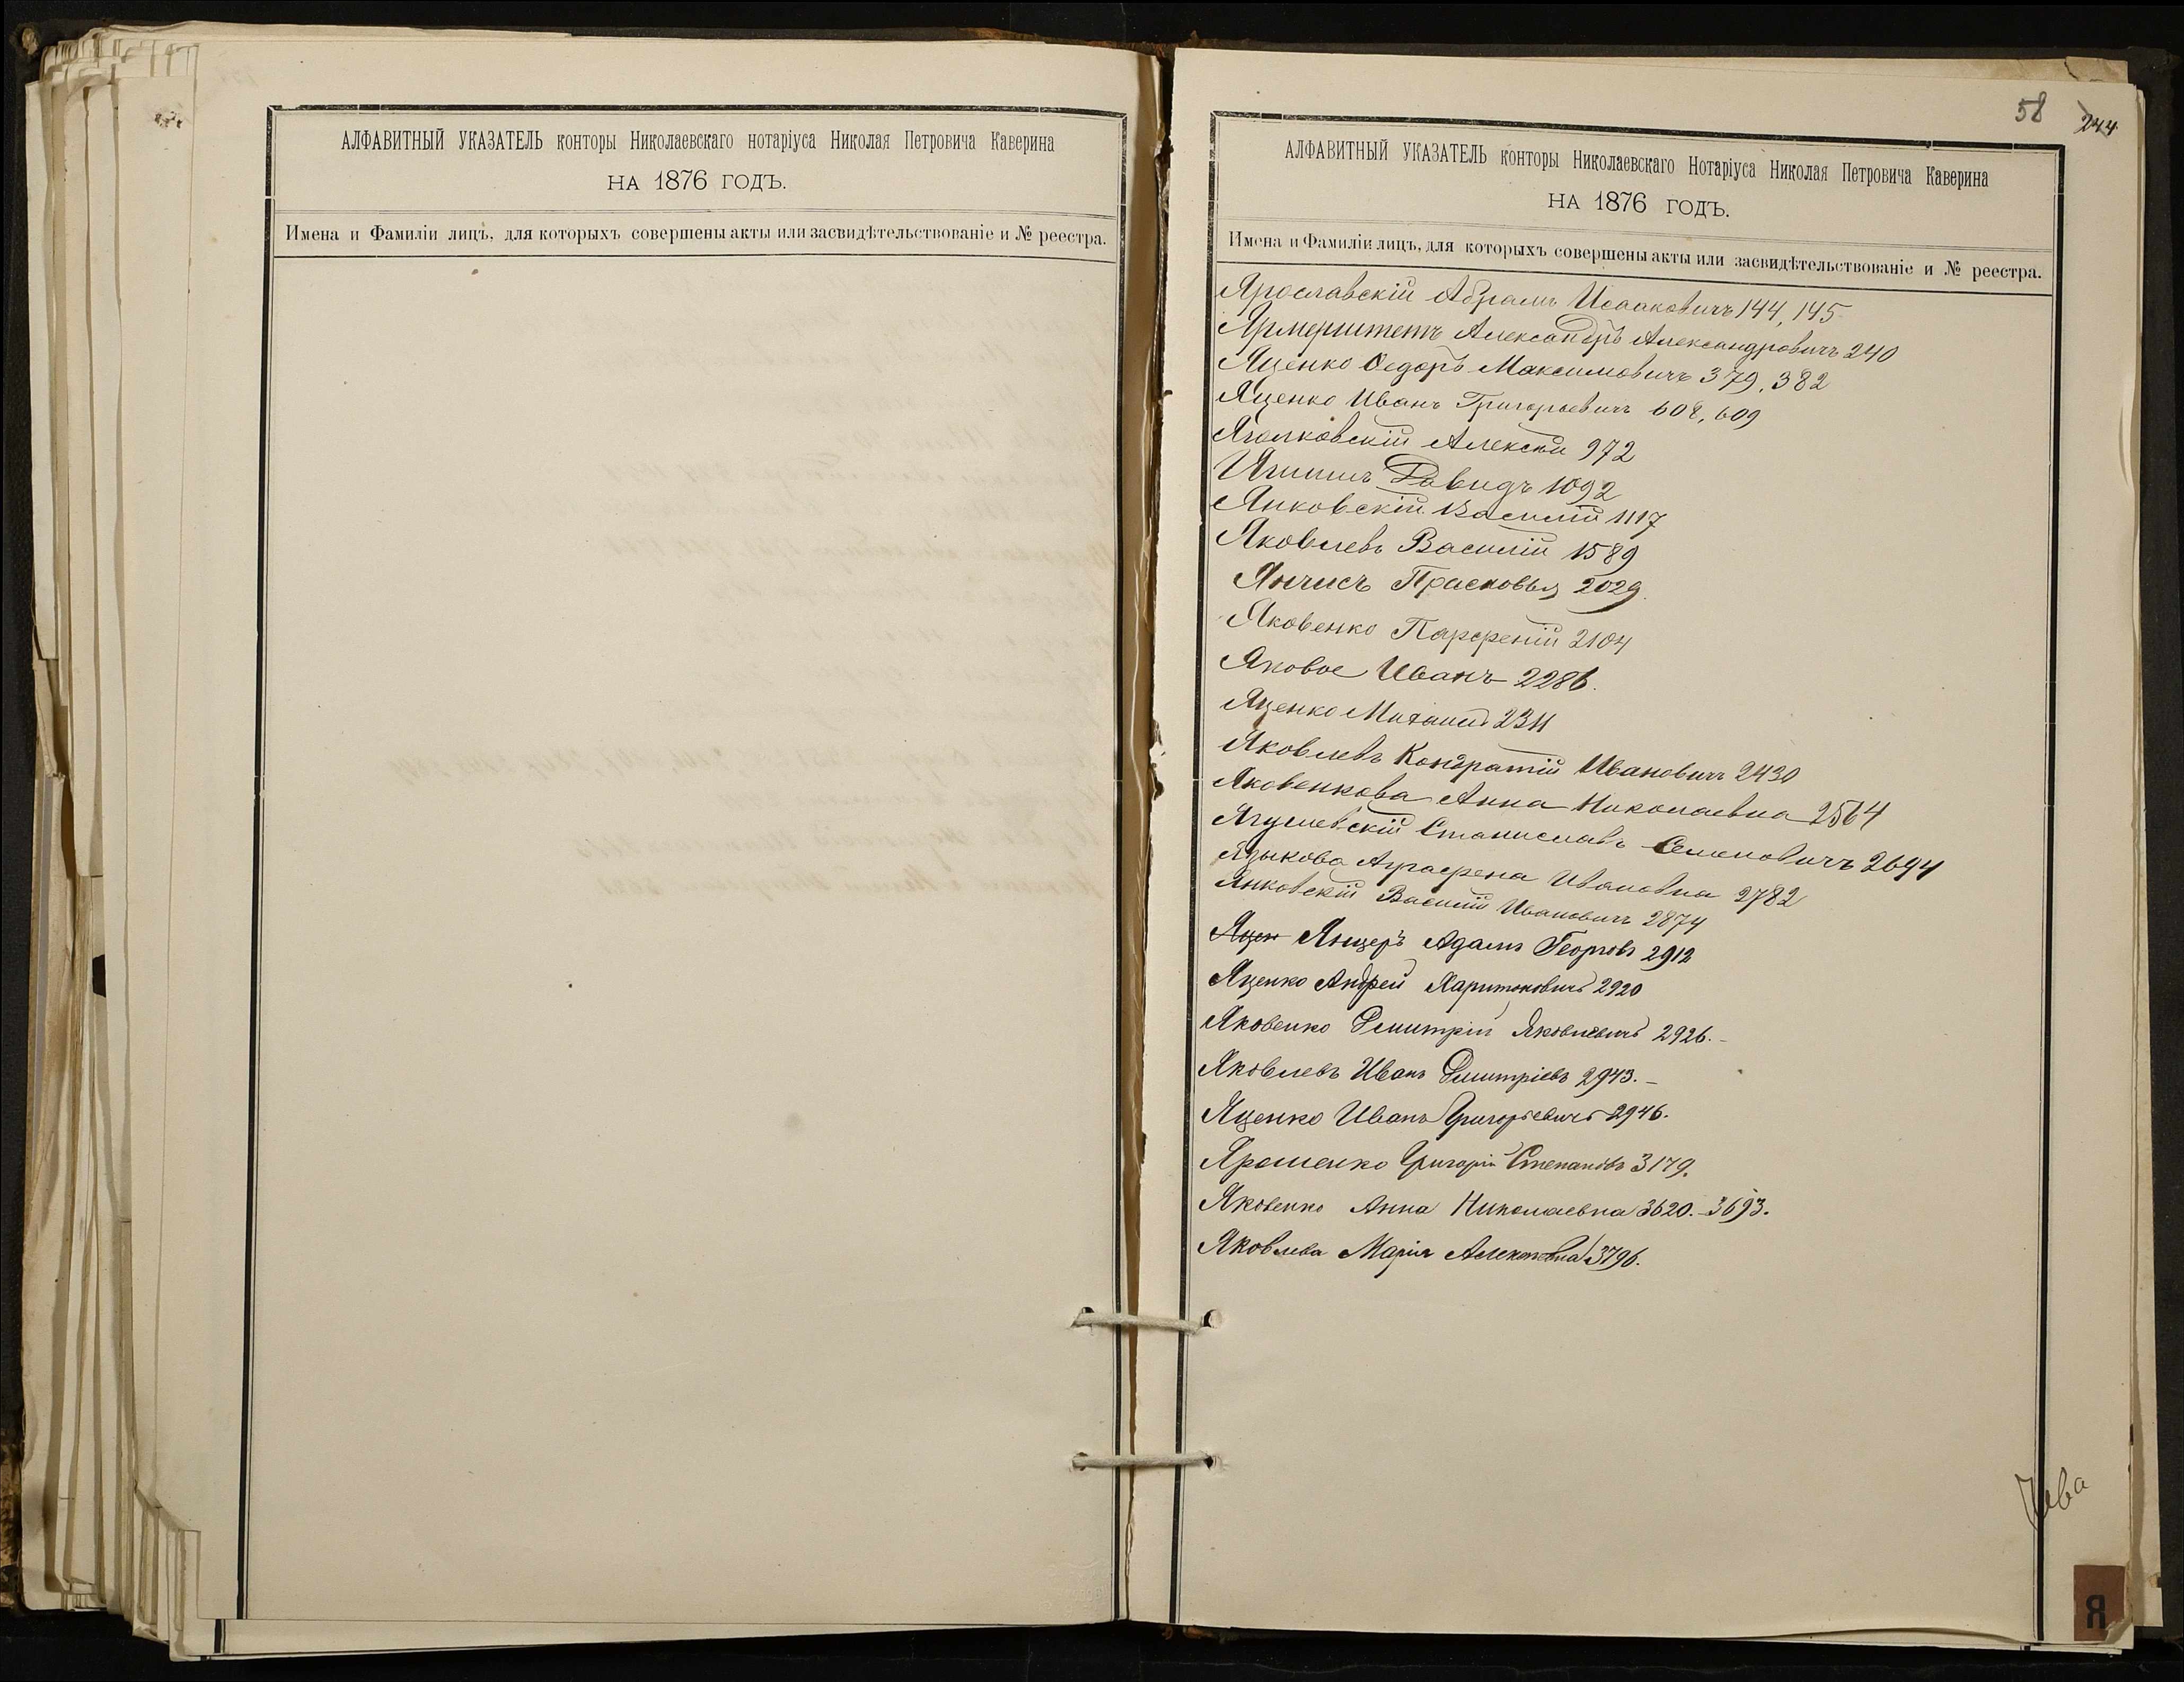 АЛФАВИТНЫЙ УКАЗАТЕЛЬ конторы Николаевскаго нотаріуса Николая Петровича Каверина
НА 1876 ГОДЪ.
Имена и Фамиліи лицъ, для которыхъ совершены акты или засвидѣтельствованіе и № реестра.
58 244
АЛФАВИТНЫЙ УКАЗАТЕЛЬ конторы Николаевскаго Нотаріуса Николая Петровича Каверина
НА 1876 ГОДЪ.
Имена и Фамиліи лицъ, для которыхъ совершены акты или засвидѣтельствованіе и № реестра.
Ярославскій Абрамъ Исааковичъ 144, 145
Ярмерштетъ Александръ Александровичъ 240
Яценко Ѳедоръ Максимовичъ 379, 382
Яценко Иванъ Григорьевичъ 608, 609
Яголковскій Алексѣй 972
Давидъ 1092
Янковскій Василій 1117
Яковлевъ Василій 1589
Янчисъ Прасковья 2029.
Яковенко Парфеній 2104
Яковое Иванъ 2286.
Яценко Михаилъ 2311
Яковлевъ Кондратій Ивановичъ 2430
Яковенкова Анна Николаевна 2564
Станиславъ Семеновичъ 2694
Языкова Аграфена Ивановна 2782
Янковскій Василій Ивановичъ 2874
Яцен Янцеръ Адамъ Георговъ 2912
Яценко Андрей Харитоновичъ 2920
Яковенко Дмитрій Яковлевичъ 2926.-
Яковлевъ Иванъ Дмитріевъ 2943.-
Яценко Иванъ Григорьевичъ 2946.
Ярошенко Григорій Степановъ 3179.
Яковенко Анна Николаевна 3620.-3693.
Яковлева Марія Алексѣевна 3796.
Я